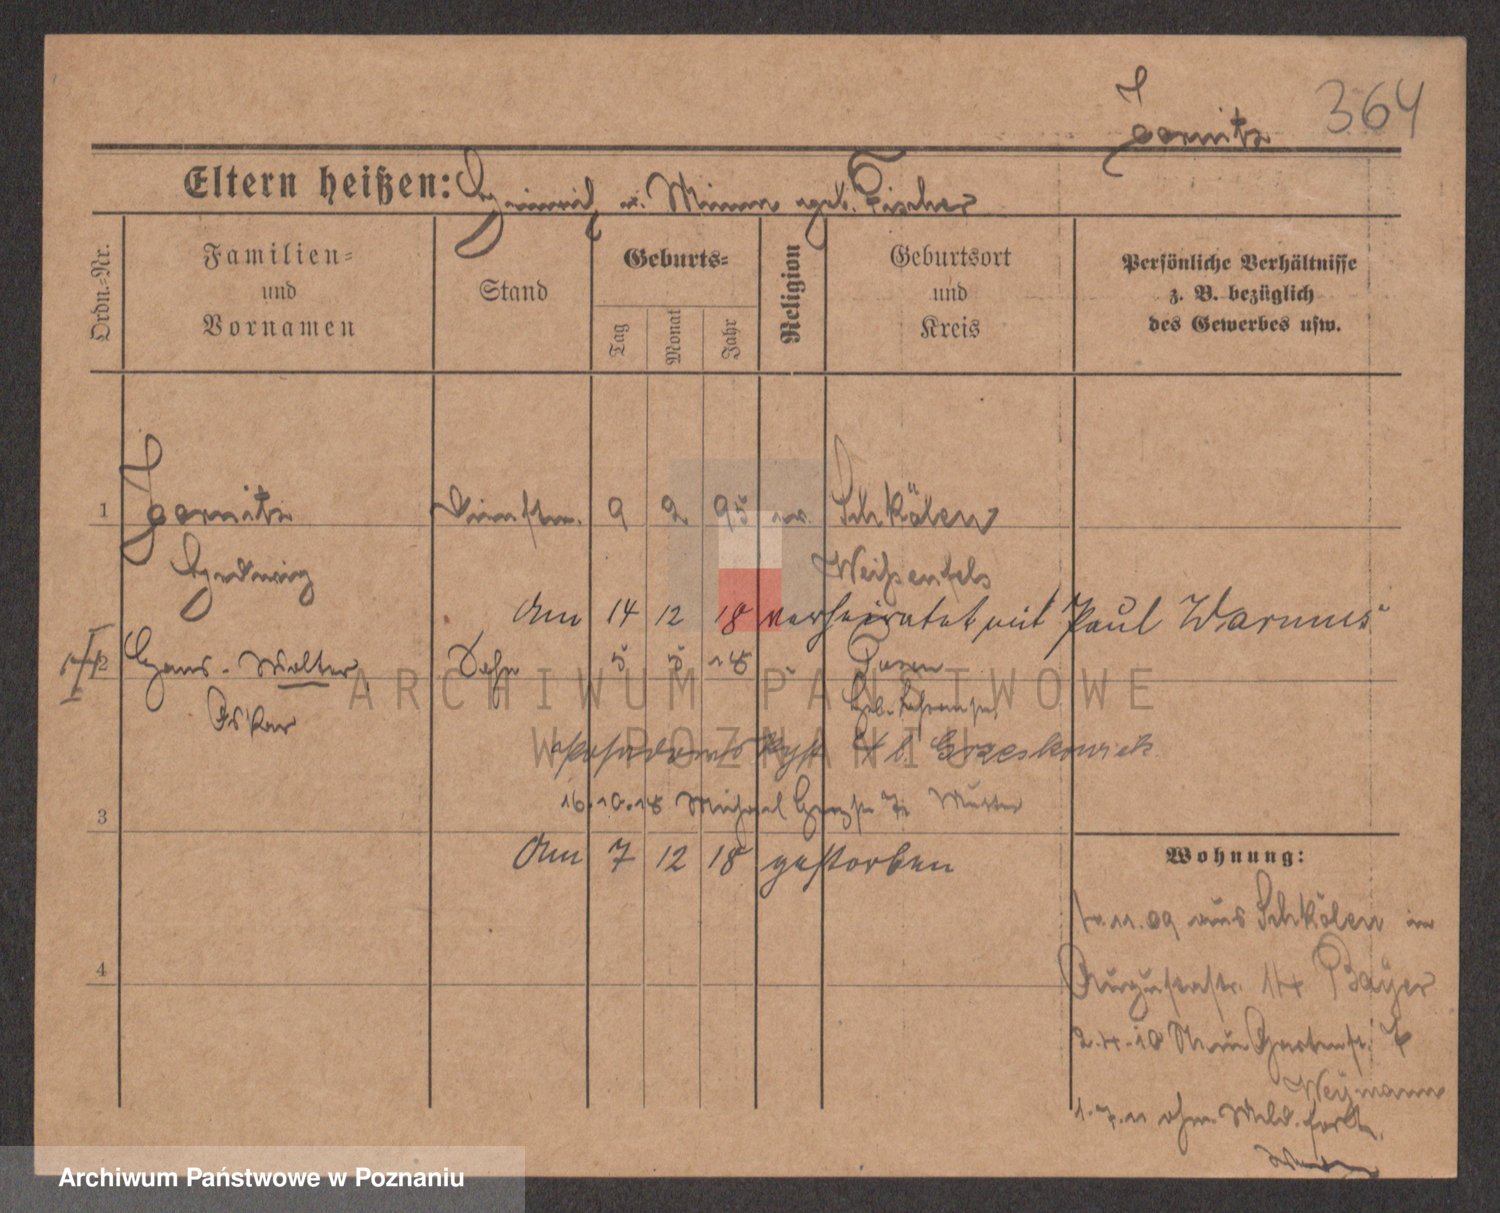 364
Jornitz
Eltern heißen: Heinrich u. Minna geb. Fischer
Ordn.-Nr.
Familien- und Vornamen
Stand
Geburts-
Tag
Monat
Jahr
Religion
Geburtsort und Kreis
Persönliche Verhältnisse z. B. bezüglich des Gewerbes usw.
1 Jornitz Dienstm. 9 2 95 ev. Schkölen
Hedwig Weißenfels
Am 14 12 18 verheiratet mit Paul Warmus
2 Hans-Walter Sohn 5 5 18 Posen
Oskar
b. Grzeskowiak
3 16.10.18 Mutter
Am 7 12 18 gestorben
Wohnung:
11.09 aus Schkölen in
Augustastr. 14 Bayer
4
2.4.10 Neue Gartenstr.
Weymann
1.7.11 ohne Meld. fort.
ARCHIWUM PAŃSTWOWE
W POZNANIU
Archiwum Państwowe w Poznaniu